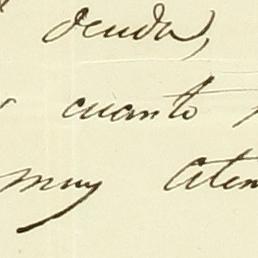 deuda,
cuanto
muy aten